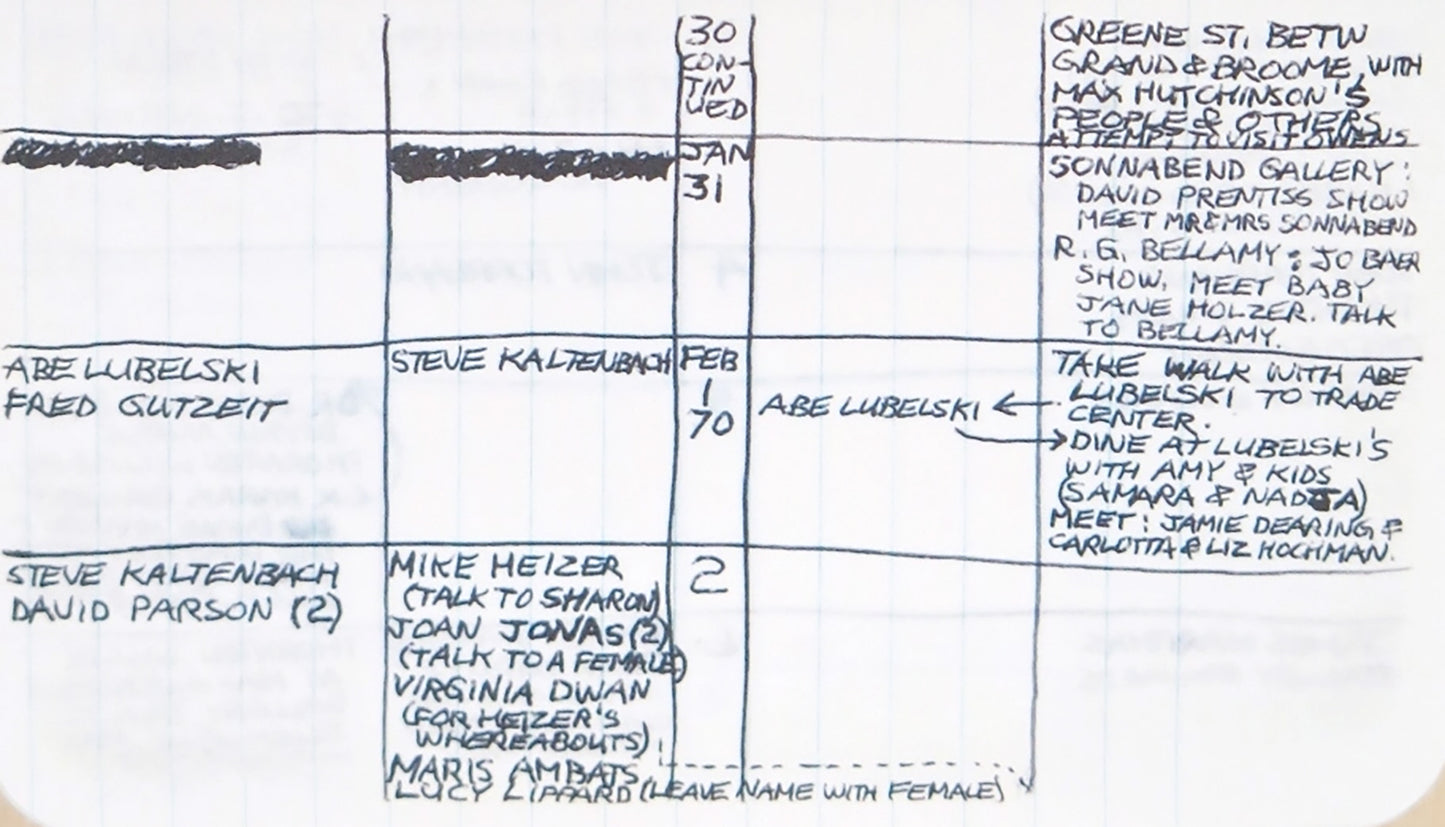 30
CON-
TIN
UED
GREENE ST. BETW
GRAND & BROOME, WITH
MAX HUTCHINSON'S
PEOPLE & OTHERS
ATTEMPT TO VISIT OWENS
JAN
31
SONNABEND GALLERY:
DAVID PRENTISS SHOW
MEET MR & MRS SONNABEND
R. G. BELLAMY: JO BAER
SHOW. MEET BABY
JANE HOLZER. TALK
TO BELLAMY.
ABE LUBELSKI
FRED GUTZEIT
STEVE KALTENBACH
FEB
1
70
ABE LUBELSKI
TAKE WALK WITH ABE
LUBELSKI TO TRADE
CENTER.
DINE AT LUBELSKI'S
WITH AMY & KIDS
(SAMARA & NADJA)
MEET: JAMIE DEARING &
CARLOTTA & LIZ HOCHMAN.
STEVE KALTENBACH
DAVID PARSON (2)
MIKE HEIZER
(TALK TO SHARON)
JOAN JONAS (2)
(TALK TO A FEMALE)
VIRGINIA DWAN
(FOR HEIZER'S
WHEREABOUTS)
MARIS AMBATS
LUCY LIPPARD (LEAVE NAME WITH FEMALE)
2